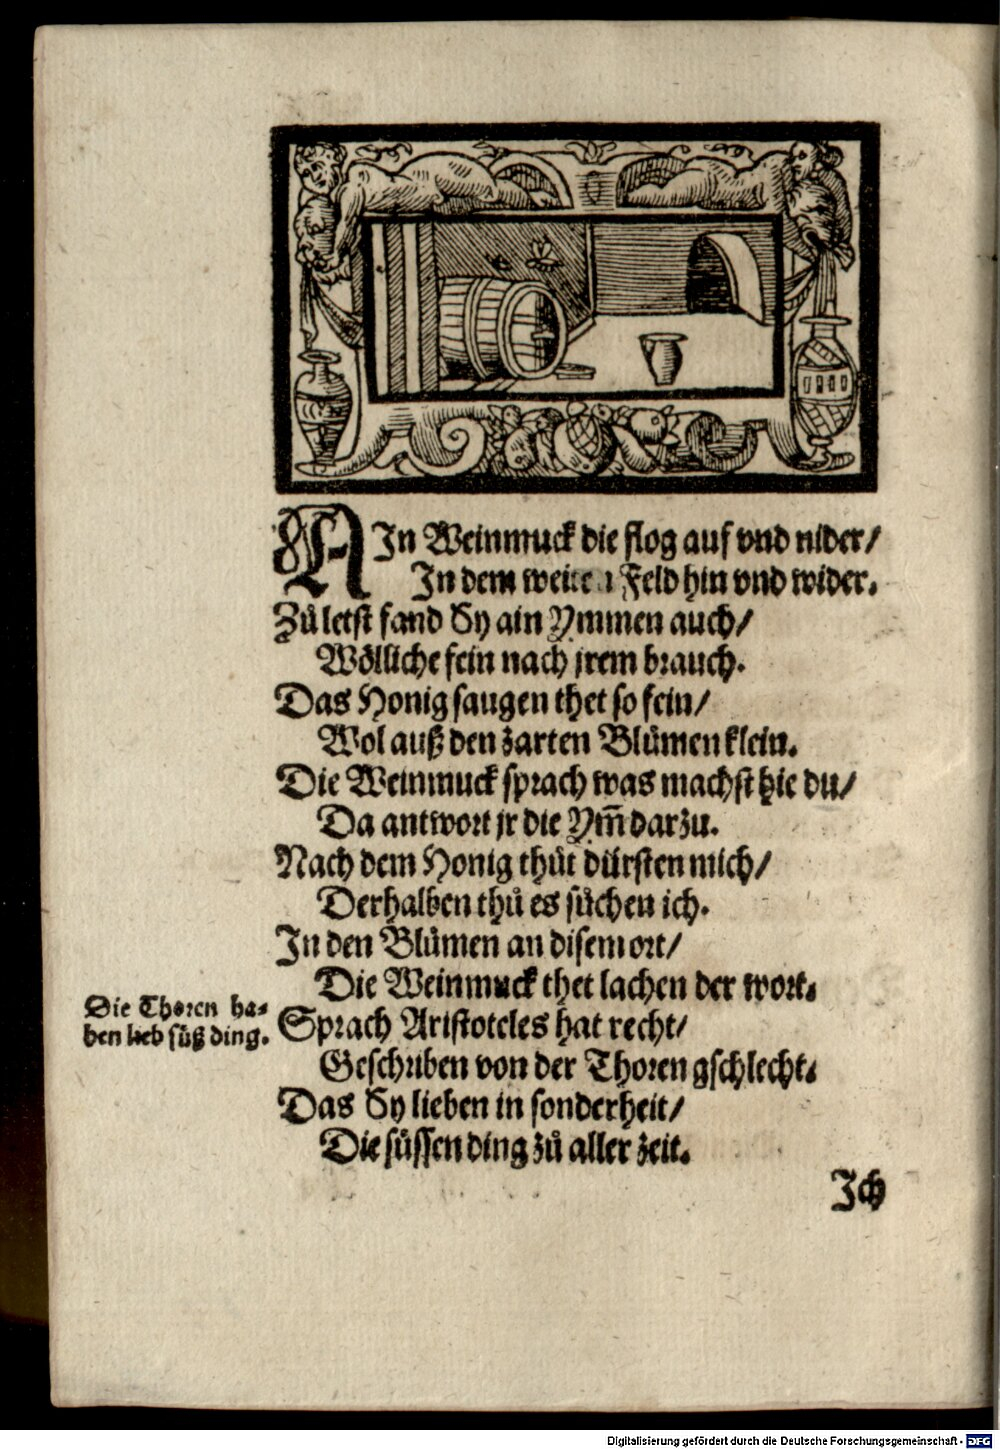 AIn Weinmuck die flog auf vnd nider/
In dem weiten Feld hin vnd wider.
Zů letst fand Sy ain Ymmen auch/
Wölliche fein nach jrem brauch.
Das Honig saugen thet so fein/
Wol auß den zarten Blůmen klein.
Die Weinmuck sprach was machst hie du/
Da antwort jr die Ym̄ darzu.
Nach dem Honig thůt dürsten mich/
Derhalben thů es sůchen ich.
In den Blůmen an disem ort/
Die Weinmuck thet lachen der wort.
Die Thoren ha-
ben lieb süß ding.
Sprach Aristoteles hat recht/
Geschriben von der Thoren gschlecht.
Das Sy lieben in sonderheit/
Die süssen ding zů aller zeit.
Ich
Digitalisierung gefördert durch die Deutsche Forschungsgemeinschaft - DFG